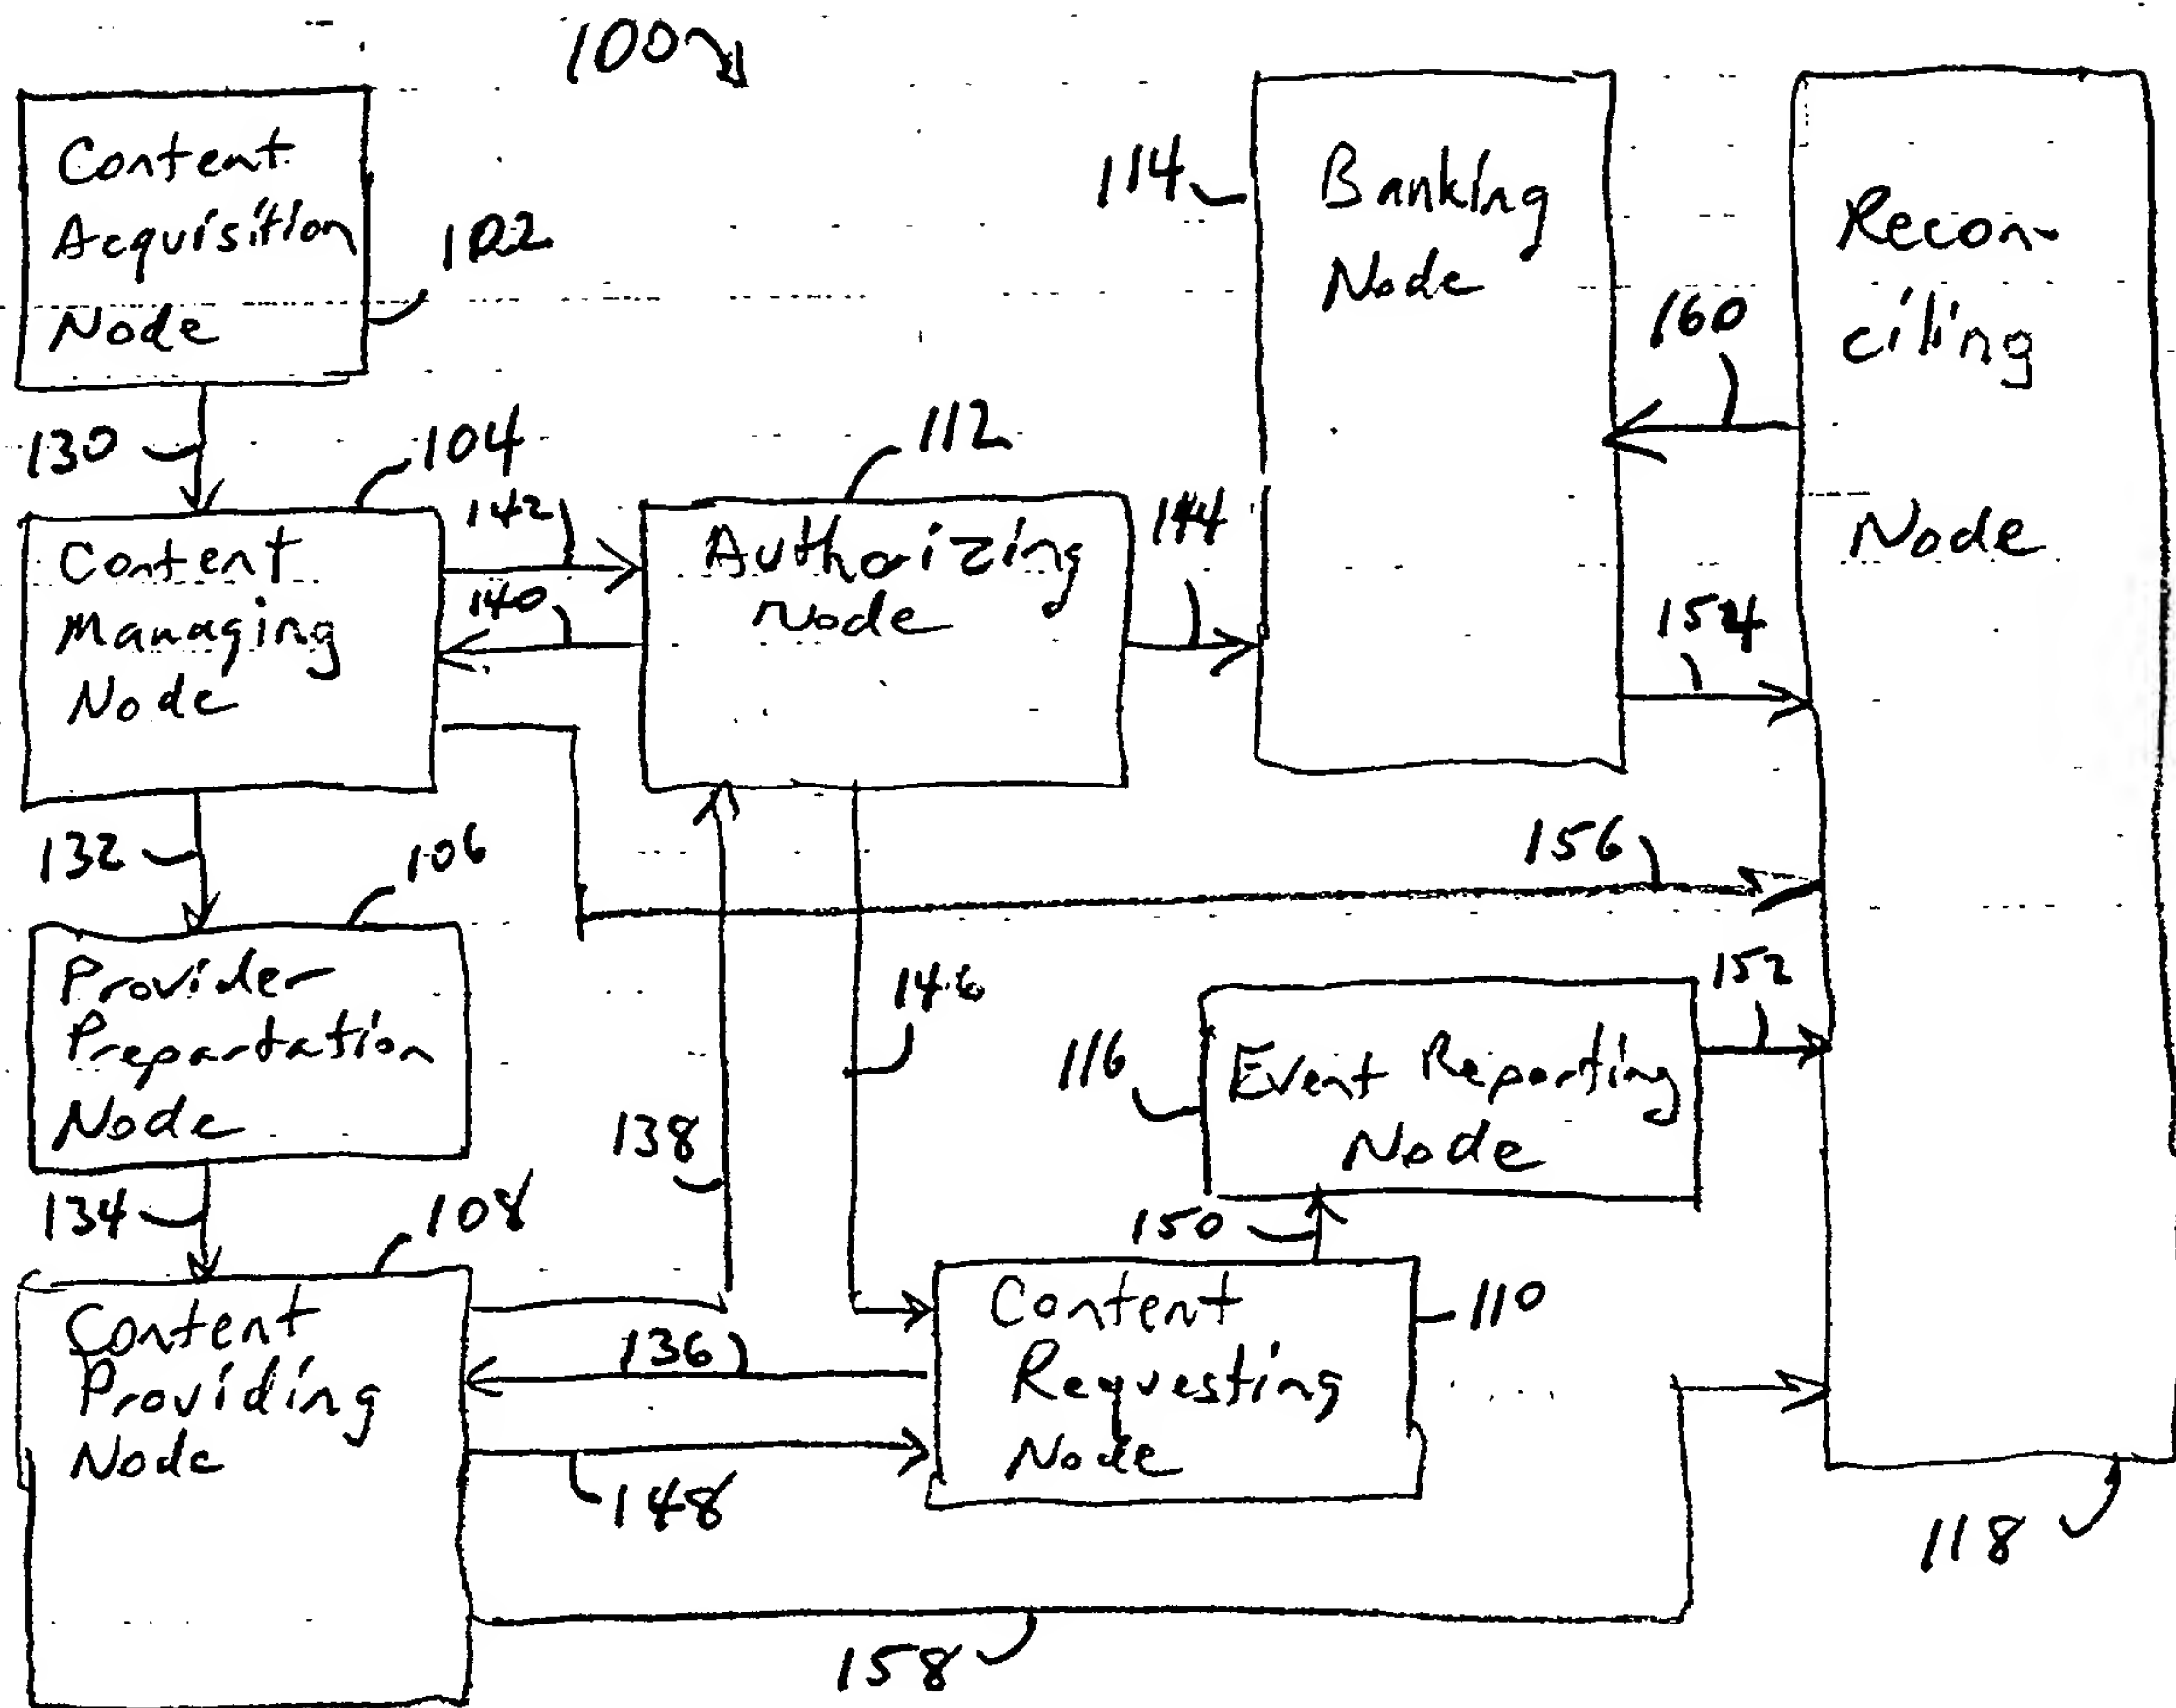 100
Content
Acquisition
Node
102
114
Banking
Node
Recon-
ciling
Node
160
130
104
112
142
140
144
Content
Managing
Node
Authorizing
Node
154
132
106
156
Provider
Prepartation
Node
146
152
138
116
Event Reporting
Node
134
108
150
Content
Providing
Node
136
148
Content
Requesting
Node
110
118
158